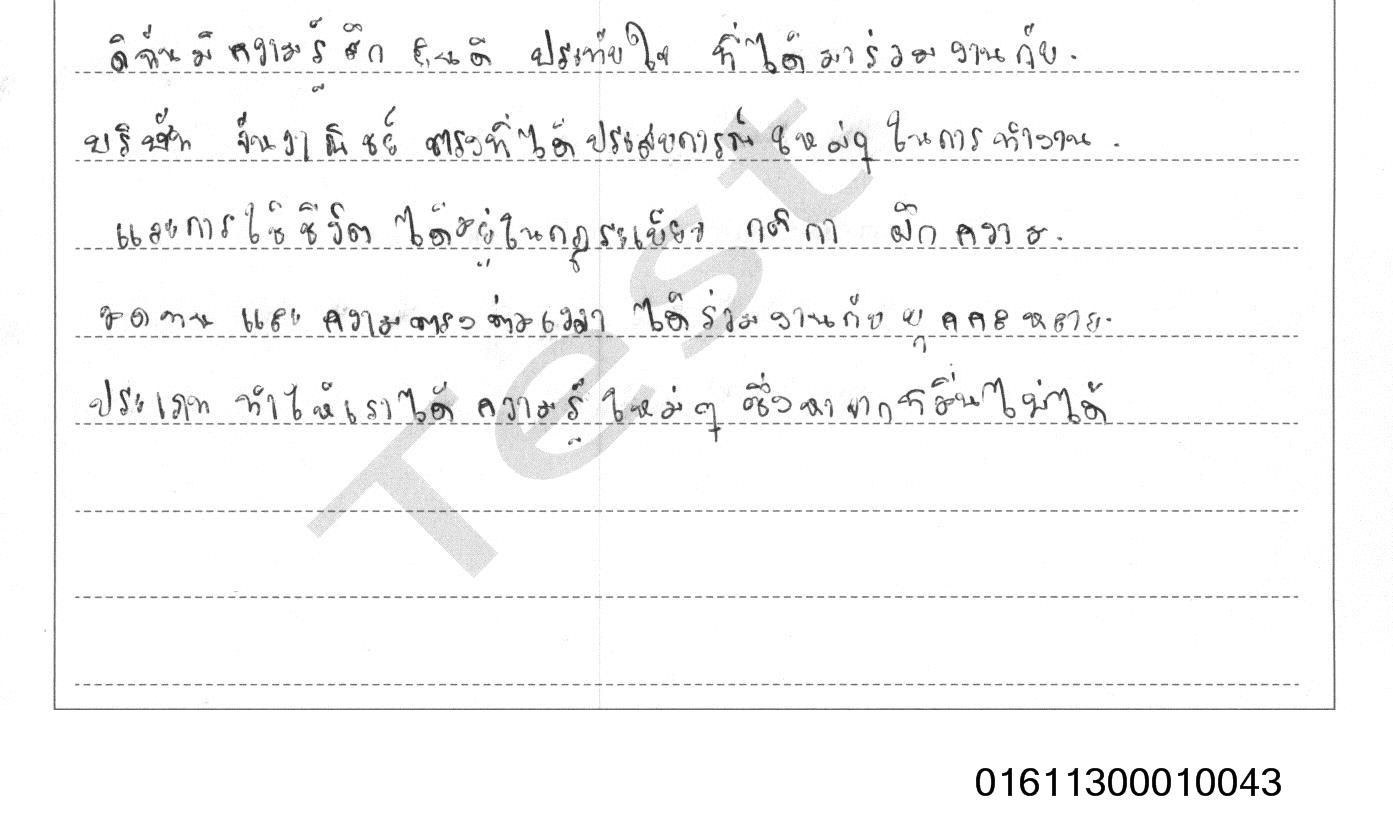 ดิฉันมีความรู้สึก ยินดี ประทับใจ ที่ได้มาร่วมงานกับ
บริษัท จันวาณิชย์ ตรงที่ได้ประสบการณ์ใหม่ๆ ในการทำงาน
และการใช้ชีวิต ได้อยู่ในกฎระเบียบ กติกา ฝึกความ
อดทน และ ความตรงต่อเวลา ได้ร่วมงานกับบุคคลหลาย
ประเภท ทำให้เราได้ความรู้ใหม่ๆ ซึ่งหาจากที่อื่นไม่ได้
Test
01611300010043